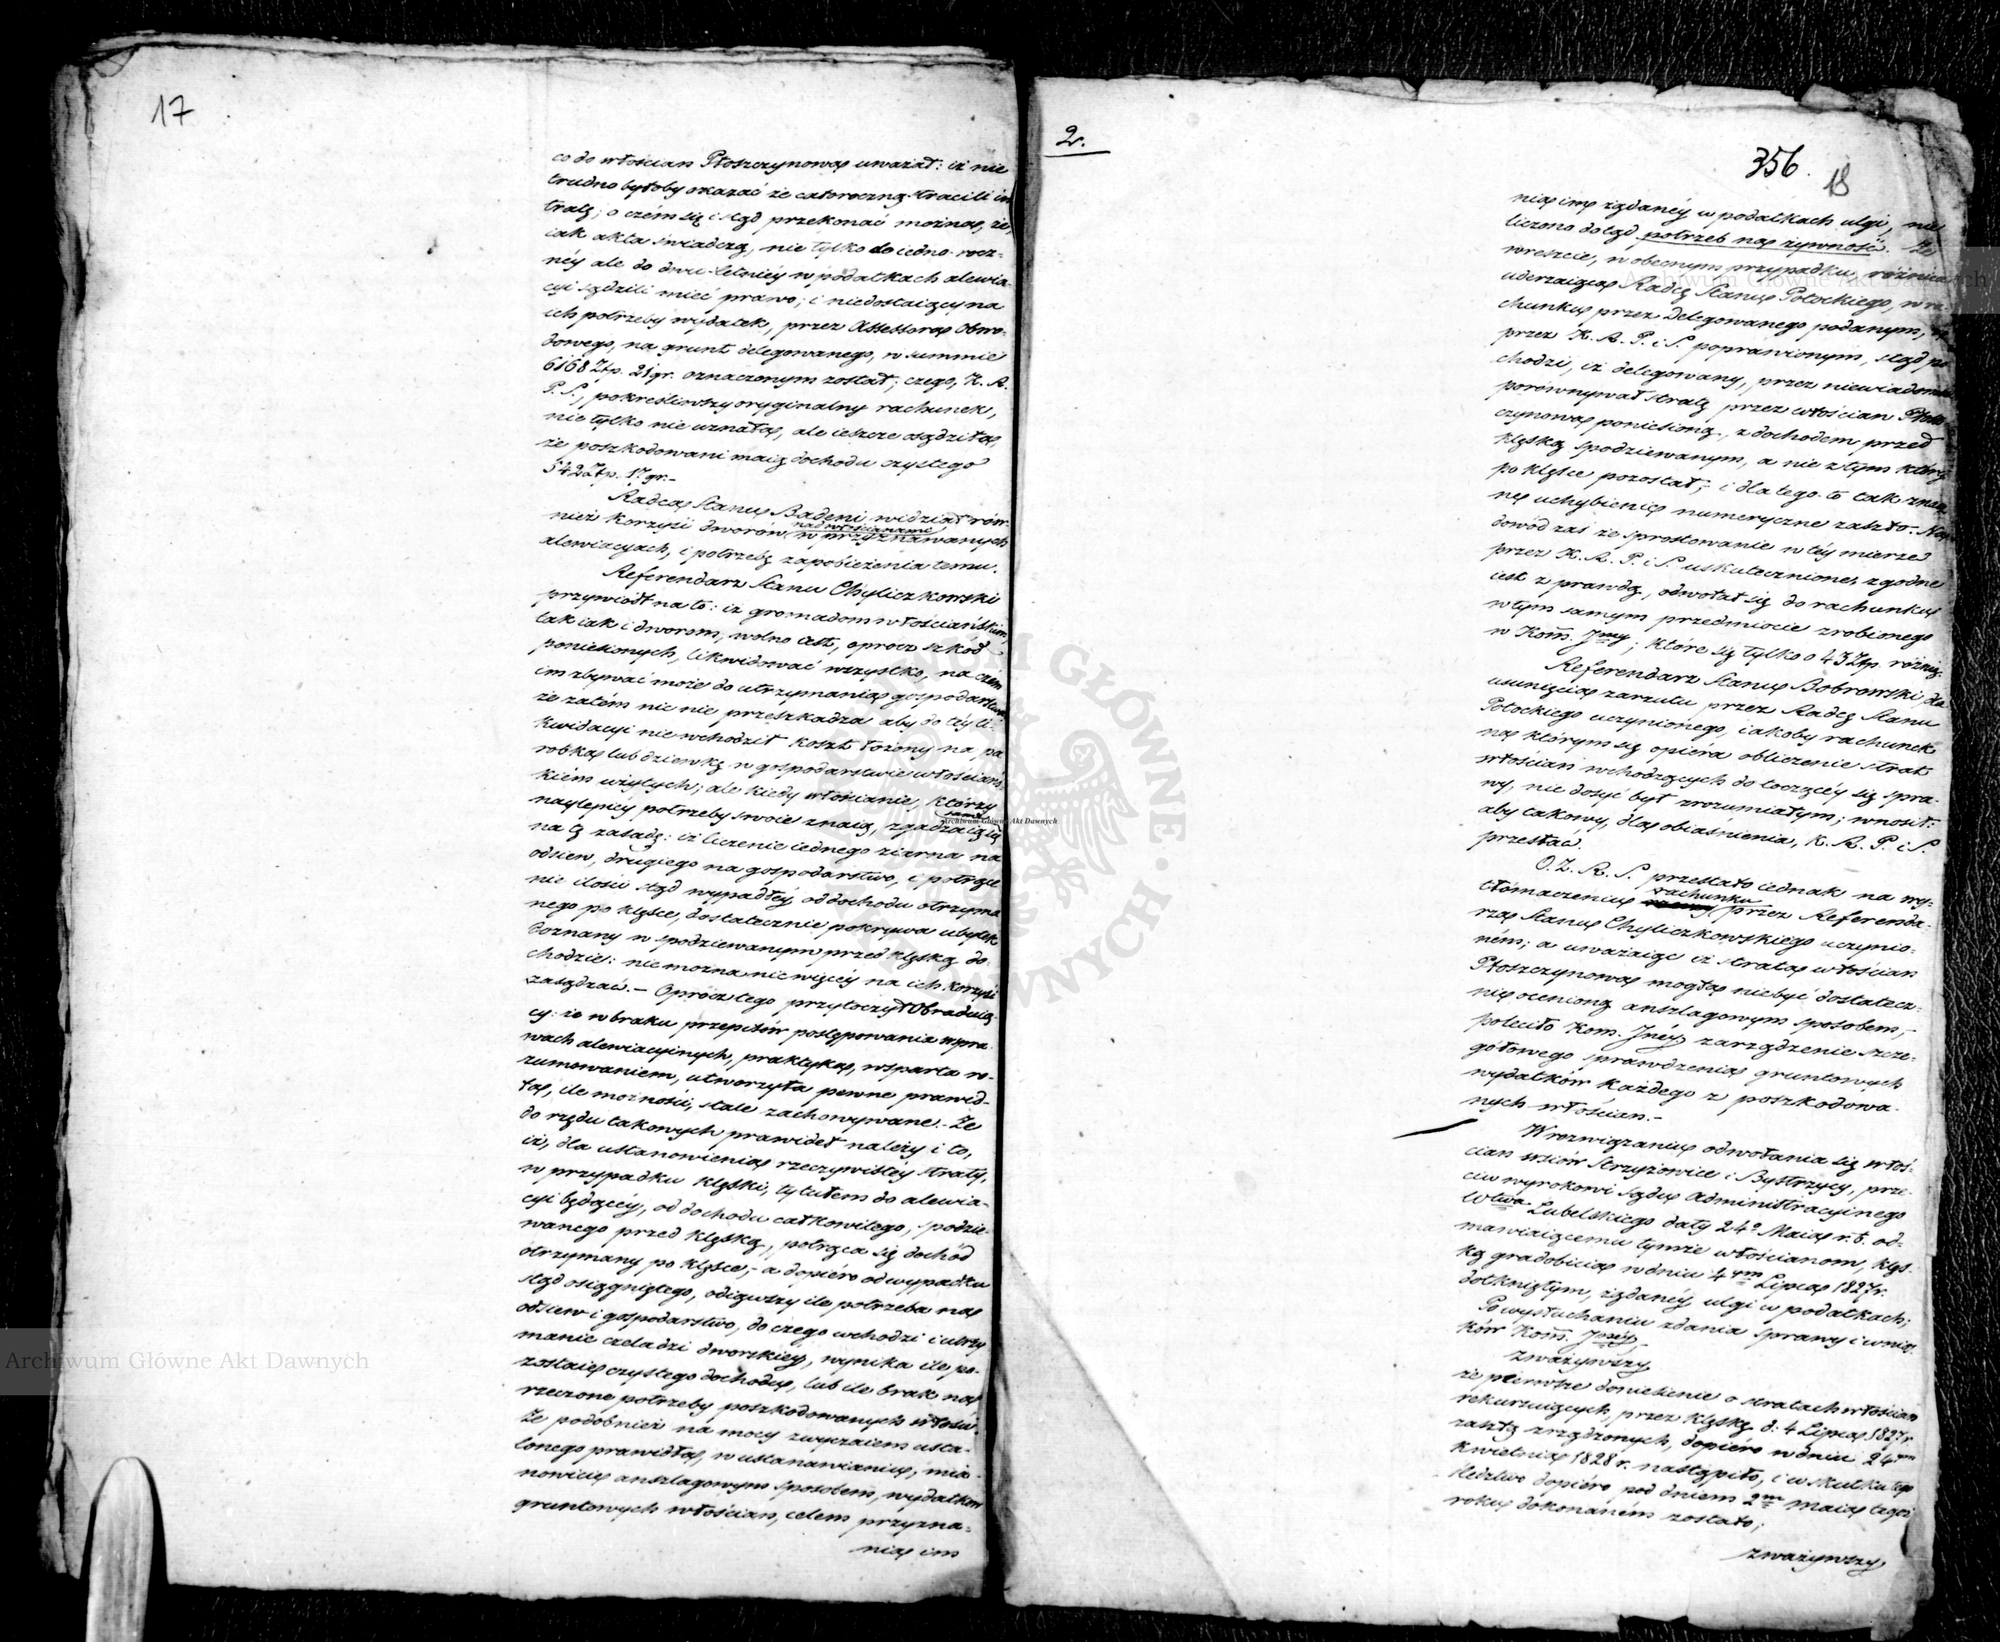 17
co do włościan Płoszczynowa uważał: iż nie
trudno byłoby okazać że całoroczną stracili in
tratę; o czém się i stąd przekonać można, że,
iak akta świadczą, nie tylko do iedno-rocz-
néy ale do dwu-letniéy w podatkach alewia-
cyi sądzili mieć prawo; i niedostaiący na
ich potrzeby wydatek, przez Assessora Obwo-
dowego, na grunt delegowanego, w summie
6168 Złp. 21 gr. oznaczonym został; czego, K. R.
P. S., pokreśliwszy oryginalny rachunek,
nie tylko nie uznała, ale ieszcze osądziła
że poszkodowani maią dochodu czystego
542 Złp. 17 gr.-
Radca Stanu Badeni widział rów-
nież korzyść dworów nad włościanami w przyznawanych
alewiacyach, i potrzebę zapobieżenia temu.
Referendarz Stanu Chyliczkowski
przywiódł na to: iż gromadom włościańskim
tak iak i dworom, wolno iest, oprócz szkód
poniesionych, likwidować wszystko, na czém
im zbywać może do utrzymania gospodarstwa
że zatém nic nie przeszkadza aby do téy li-
kwidacyi nie wchodził koszt łożony na pa
robka lub dziewkę w gospodarstwie włościańs
kiém użytych; ale kiedy włościanie, którzy
naylepiéy potrzeby swoie znaią, zgadzaią się sami
na tę zasadę: iż liczenie iednego ziarna na
odsiew, drugiego na gospodarstwo, i potrące
nie ilości stąd wypadłéy od dochodu otrzyma
nego po klęsce, dostatecznie pokrywa ubytek
doznany w spodziewanym przed klęską do-
chodzie: nie można nic więcéy na ich korzyść
zasądzać. — Oprócz tego przytoczył Obraduią-
cy: że w braku przepisów postępowania w spra
wach alewiacyinych, praktyka, wsparta ro-
zumowaniem, utworzyła pewne prawid-
ła, ile możności, stale zachowywane. - Że
do rzędu takowych prawideł należy i to,
iż, dla ustanowienia rzeczywistéy straty,
w przypadku klęski, tytułem do alewia-
cyi będącéy, od dochodu całkowitego, spodzie-
wanego przed klęską, potrąca się dochód
otrzymany po klęsce; - a dopiéro od wypadku
stąd osiągniętego, odiąwszy ile potrzeba na
odsiew i gospodarstwo, do czego wchodzi i utrzy
manie czeladzi dworskiéy, wynika ile po-
zostaie czystego dochodu, lub ile brak na
rzeczone potrzeby poszkodowanych włości.
Że podobnież na mocy zwyczaiem usta-
lonego prawidła, w ustanawianiu, mia-
nowicie anszlagowym sposobem, wydatków
gruntowych włościan, celem przyzna-
nia im
2.
356.
18
nia im żądanéy w podatkach ulgi, nie
liczono dotąd potrzeb na żywność. Że
wreszcie, w obecnym przypadku, różnica
uderzaiąca Radcę Stanu Potockiego, w ra-
chunku przez delegowanego podanym, a
przez K. R. P. i S. poprawionym, stąd po
chodzi, iż delegowany, przez niewiadomość
porównywał stratę przez włościan Płosz
czynowa poniesioną, z dochodem przed
klęską spodziewanym, a nie z tym który
po klęsce pozostał; i dla tego to tak znacz
ne uchybienie numeryczne zaszło. Na
dowód zaś że sprostowanie w téy mierze
przez K. R. P. i S. uskutecznione, zgodne
iest z prawdą, odwołał się do rachunku
w tym samym przedmiocie zrobionego
w Kom. Jney; które się tylko o 43 Złp. różnią.
Referendarz Stanu Bobrowski, dla
usunięcia zarzutu przez Radcę Stanu
Potockiego uczynionego, iakoby rachunek
na którym się opiéra obliczenie strat
włościan wchodzących do toczącéy się spra-
wy, nie dosyć był zrozumiałym; wnosił:
aby takowy, dla obiaśnienia, K. R. P. i S.
przesłać.
O. Z. R. S. przestało iednak na wy-
tłómaczeniu rachunku przez Referenda-
rza Stanu Chyliczkowskiego uczynio-
ném; a uważaiąc iż strata włościan
Płoszczynowa mogła niebyć dostatecz-
nie ocenioną anszlagowym sposobem, -
poleciło Kom. Jnéy zarządzenie szcze-
gółowego sprawdzenia gruntowych
wydatków każdego z poszkodowa-
nych włościan.-
W rozwiązaniu odwołania się włoś-
cian wsiów Strzyżowice i Bystrzycy, prze-
ciw wyrokowi Sądu Administracyinego
Wtwa Lubelskiego daty 24o Maia r. b. od-
mawiaiącemu tymże włościanom, klęs-
ką gradobicia w dniu 4ym Lipca 1827 r.
dotkniętym, żądanéy ulgi w podatkach;
Po wysłuchaniu zdania sprawy i wnios
ków Kom. Jnéy
zważywszy
że piérwsze doniesienie o stratach włościan
rekuruiących, przez klęskę d: 4 Lipca 1827 r.
zaszłą zrządzonych, dopiéro w dniu 24ym
Kwietnia 1828 r. nastąpiło, i w skutku tego
śledztwo dopiéro pod dniem 2m Maia tegoż
roku dokonaném zostało;
zważywszy